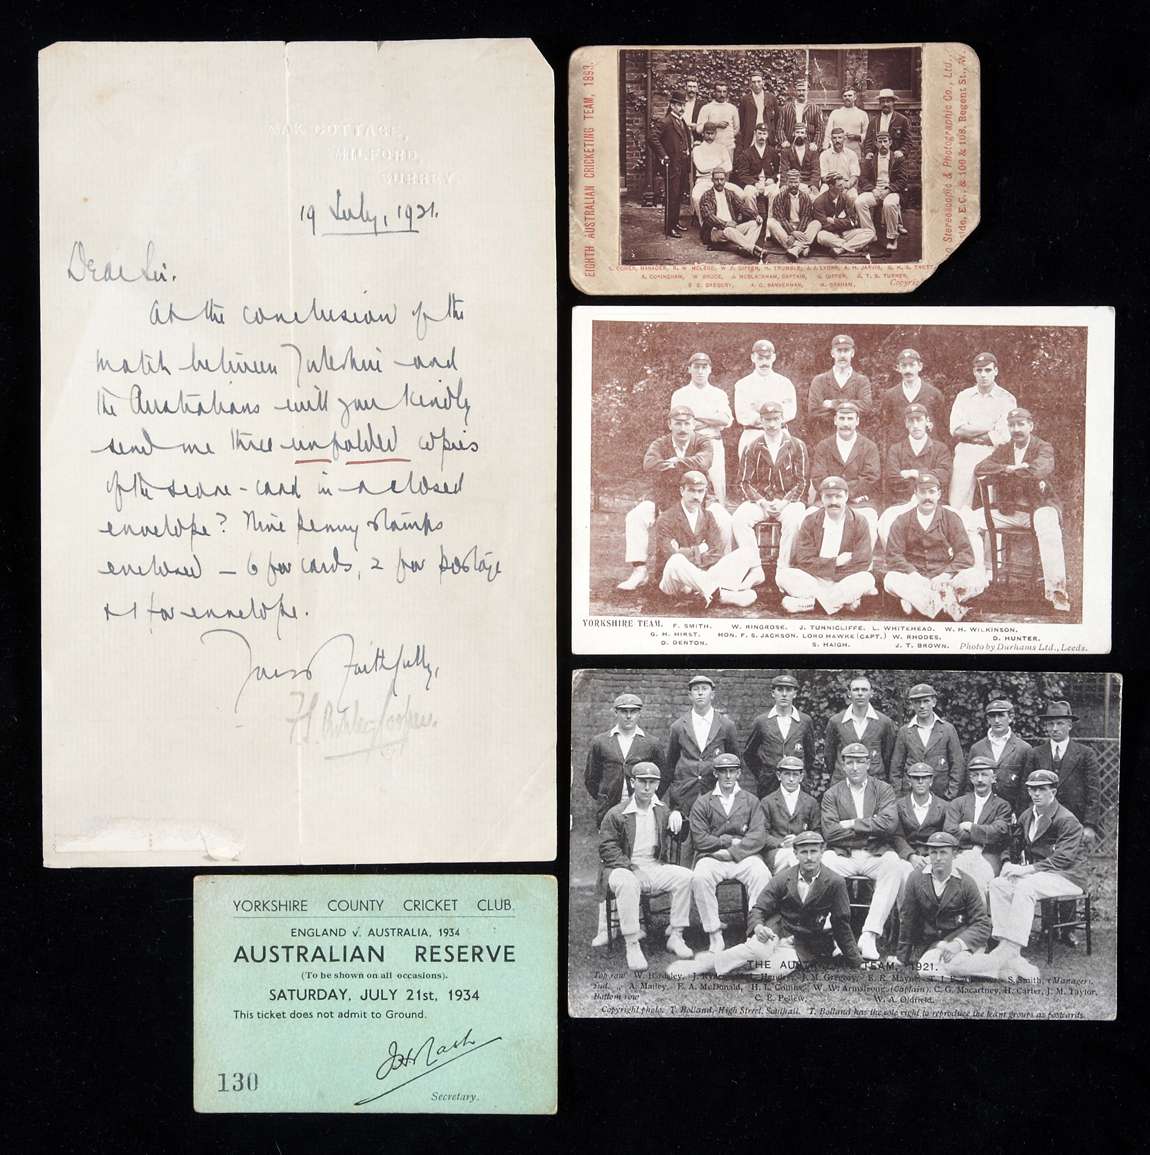 OAK COTTAGE,
MILFORD,
SURREY.
19 July, 1921.
Dear Sir.
At the conclusion of the
match between Yorkshire and
the Australians will you kindly
send me three unfolded copies
of the score-card in a closed
envelope? Nine penny stamps
enclosed – 6 for cards, 2 for postage
& 1 for envelope.
Yours Faithfully,
YORKSHIRE COUNTY CRICKET CLUB.
ENGLAND v. AUSTRALIA, 1934
AUSTRALIAN RESERVE
(To be shown on all occasions).
SATURDAY, JULY 21st, 1934
This ticket does not admit to Ground.
130
Secretary.
EIGHTH AUSTRALIAN CRICKETING TEAM, 1893.
Stereoscopic & Photographic Co., Ltd.,
ide, E.C., & 106 & 108, Regent St., W.
MANAGER, R. W. McLEOD, W. F. GIFFEN, H. TRUMBLE, J. J. LYONS, A. H. JARVIS,
A. CONINGHAM, W. BRUCE, J. McBLACKHAM, CAPTAIN, G. GIFFEN, C. T. B. TURNER,
S. E. GREGORY, A. C. BANNERMAN, H. GRAHAM,
Copyrig
YORKSHIRE TEAM. F. SMITH. W. RINGROSE. J. TUNNICLIFFE. L. WHITEHEAD. W. H. WILKINSON.
G. H. HIRST. HON. F. S. JACKSON. LORD HAWKE (CAPT.) W. RHODES. D. HUNTER.
D. DENTON. S. HAIGH. J. T. BROWN. Photo by Durhams Ltd., Leeds.
THE AUSTRALIAN TEAM, 1921.
Top row W. Bardsley, J. Ryder, H. Hendry, J. M. Gregory, E. R. Mayne, T. J. E. Andrews, S. Smith, (Manager).
2nd. „ A. Mailey, E. A. McDonald, H. L. Collins, W. W. Armstrong, (Captain), C. G. Macartney, H. Carter, J. M. Taylor,
Bottom row C. E. Pellew, W. A. Oldfield.
Copyright photo. T. Bolland, High Street, Southall. T. Bolland has the sole right to reproduce the team groups as postcards.